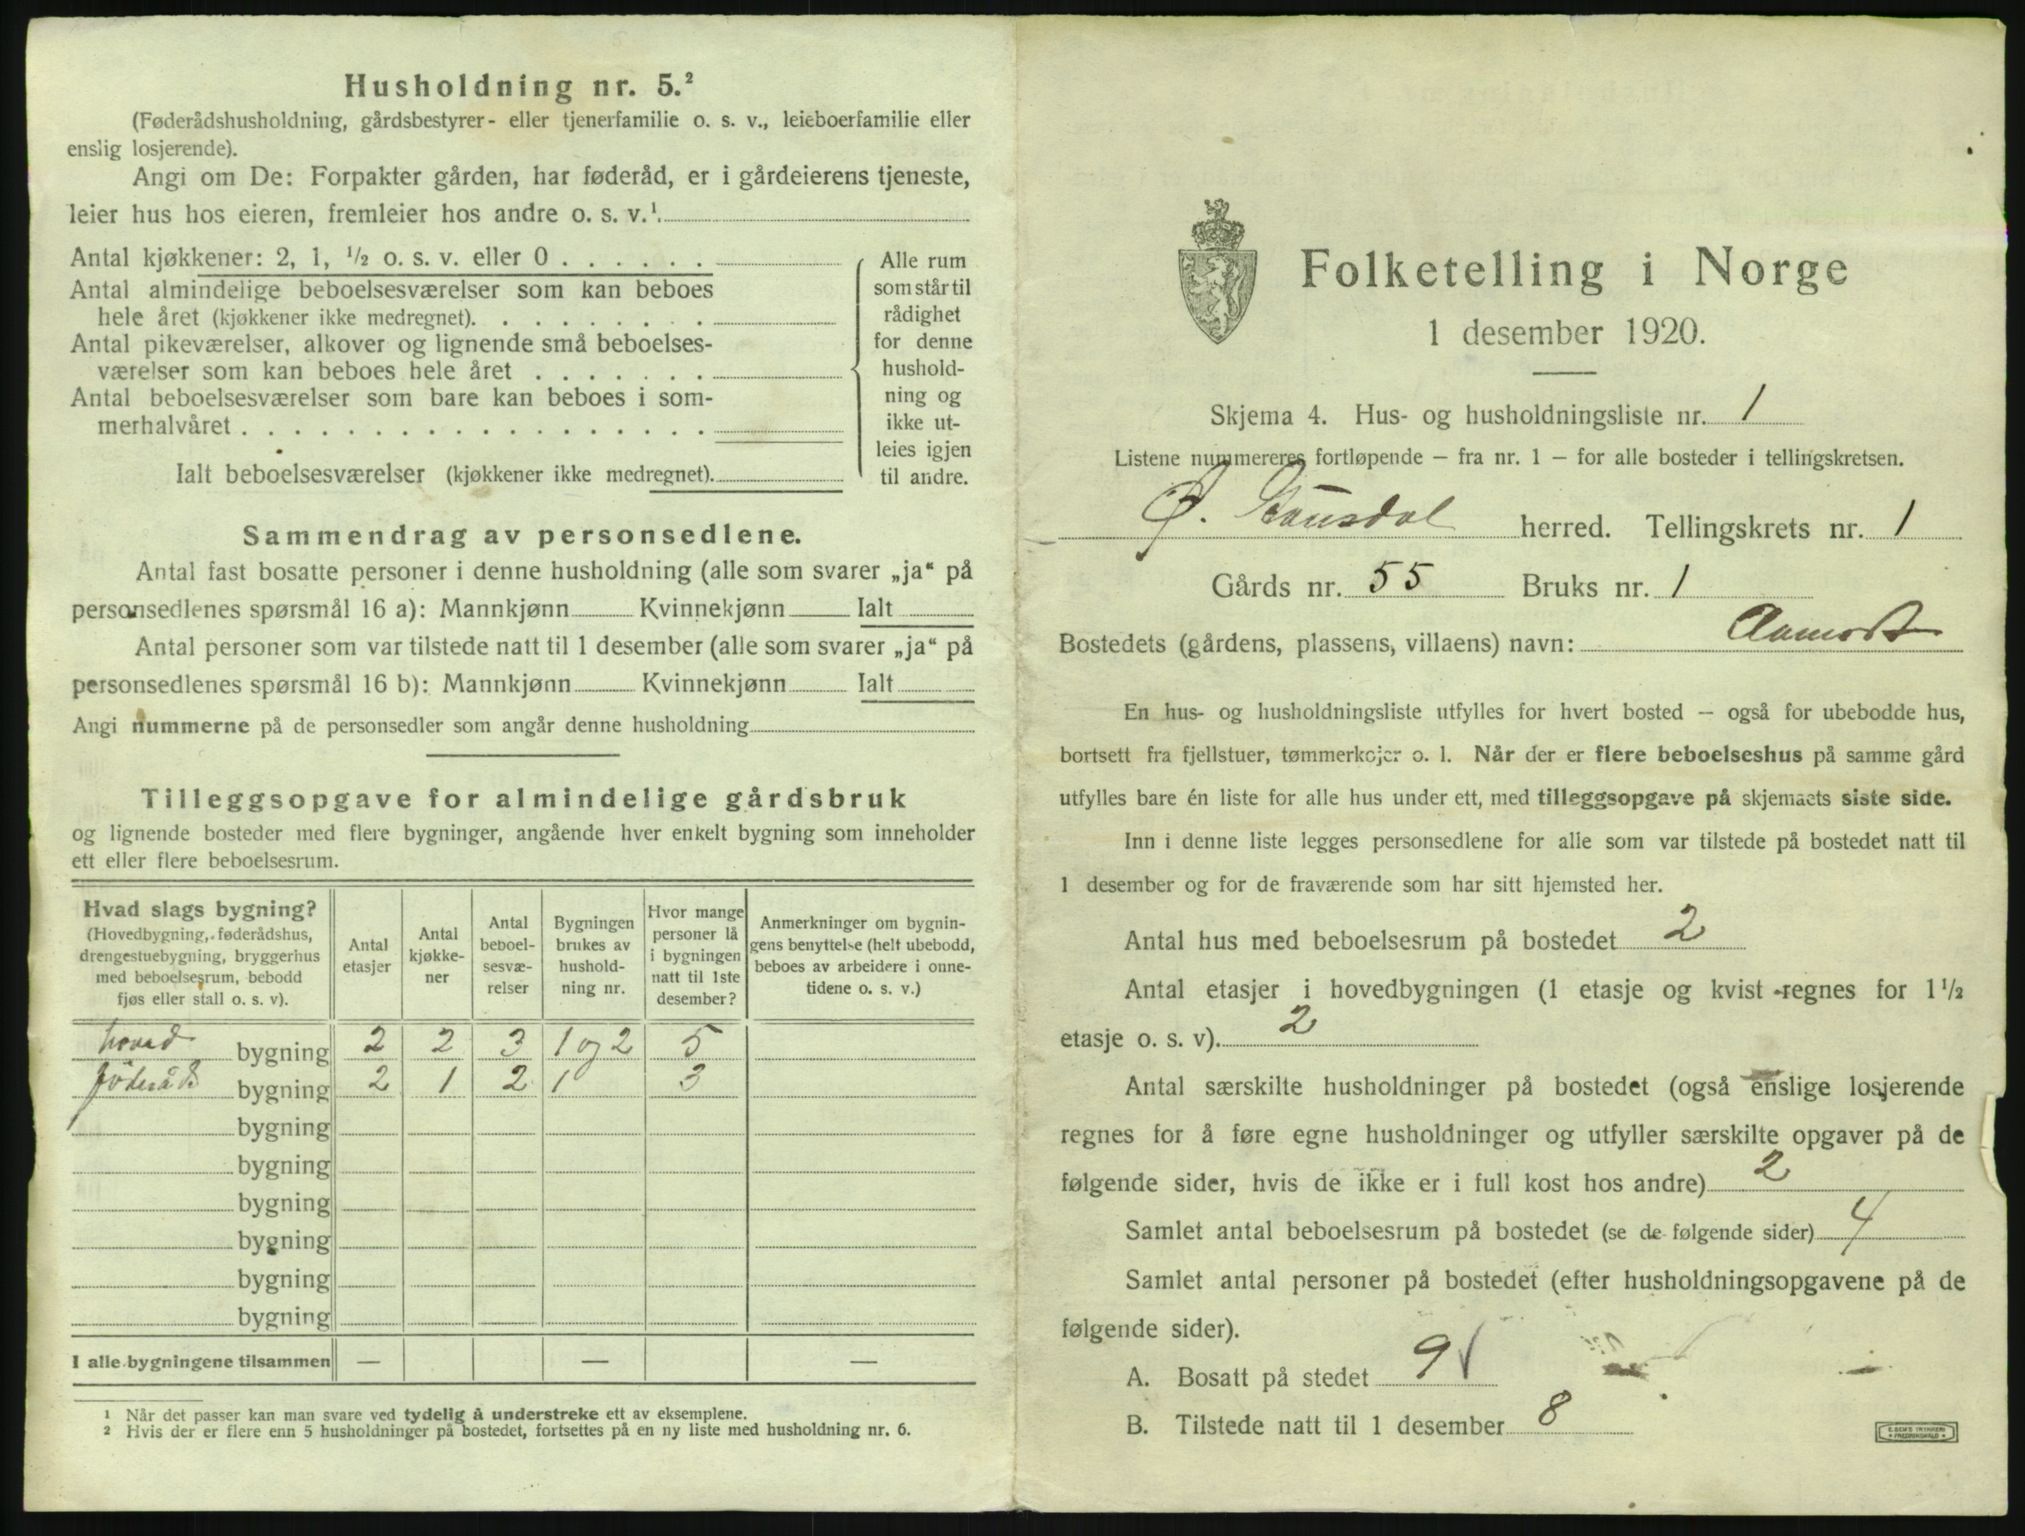 Husholdning nr. 5.²
(Føderådshusholdning, gårdsbestyrer- eller tjenerfamilie o. s. v., leieboerfamilie eller
enslig losjerende).
Angi om De: Forpakter gården, har føderåd, er i gårdeierens tjeneste,
leier hus hos eieren, fremleier hos andre o. s. v.¹
Antal kjøkkener: 2, 1, ½ o. s. v. eller 0
Antal almindelige beboelsesværelser som kan beboes
hele året (kjøkkener ikke medregnet).
Antal pikeværelser, alkover og lignende små beboelses-
værelser som kan beboes hele året
Antal beboelsesværelser som bare kan beboes i som-
merhalvåret
Ialt beboelsesværelser (kjøkkener ikke medregnet).
Alle rum
som står til
rådighet
for denne
hushold-
ning og
ikke ut-
leies igjen
til andre.
Sammendrag av personsedlene.
Antal fast bosatte personer i denne husholdning (alle som svarer „ja“ på
personsedlenes spørsmål 16 a): Mannkjønn Kvinnekjønn Ialt
Antal personer som var tilstede natt til 1 desember (alle som svarer „ja“ på
personsedlenes spørsmål 16 b): Mannkjønn Kvinnekjønn Ialt
Angi nummerne på de personsedler som angår denne husholdning
Tilleggsopgave for almindelige gårdsbruk
og lignende bosteder med flere bygninger, angående hver enkelt bygning som inneholder
ett eller flere beboelsesrum.
Hvad slags bygning?
(Hovedbygning, føderådshus,
drengestuebygning, bryggerhus
med beboelsesrum, bebodd
fjøs eller stall o. s. v).
Antal
etasjer
Antal
kjøkke-
ner
Antal
beboel-
sesvæ-
relser
Bygningen
brukes av
hushold-
ning nr.
Hvor mange
personer lå
i bygningen
natt til 1ste
desember?
Anmerkninger om bygnin-
gens benyttelse (helt ubebodd,
beboes av arbeidere i onne-
tidene o. s. v.)
hoved bygning 2 2 3 1 og 2 5
föderåds bygning 2 1 2 1 3
bygning
bygning
bygning
bygning
bygning
bygning
I alle bygningene tilsammen — — —
¹ Når det passer kan man svare ved tydelig å understreke ett av eksemplene.
² Hvis der er flere enn 5 husholdninger på bostedet, fortsettes på en ny liste med husholdning nr. 6.
Folketelling i Norge
1 desember 1920.
Skjema 4. Hus- og husholdningsliste nr. 1
Listene nummereres fortløpende — fra nr. 1 — for alle bosteder i tellingskretsen.
Ø. Gausdal herred. Tellingskrets nr. 1
Gårds nr. 55 Bruks nr. 1
Bostedets (gårdens, plassens, villaens) navn: Aamodt
En hus- og husholdningsliste utfylles for hvert bosted — også for ubebodde hus,
bortsett fra fjellstuer, tømmerkojer o. l. Når der er flere beboelseshus på samme gård
utfylles bare én liste for alle hus under ett, med tilleggsopgave på skjemaets siste side.
Inn i denne liste legges personsedlene for alle som var tilstede på bostedet natt til
1 desember og for de fraværende som har sitt hjemsted her.
Antal hus med beboelsesrum på bostedet 2
Antal etasjer i hovedbygningen (1 etasje og kvist regnes for 1½
etasje o. s. v). 2
Antal særskilte husholdninger på bostedet (også enslige losjerende
regnes for å føre egne husholdninger og utfyller særskilte opgaver på de
følgende sider, hvis de ikke er i full kost hos andre) 2
Samlet antal beboelsesrum på bostedet (se de følgende sider) 4
Samlet antal personer på bostedet (efter husholdningsopgavene på de
følgende sider).
A. Bosatt på stedet 9 √
B. Tilstede natt til 1 desember 8